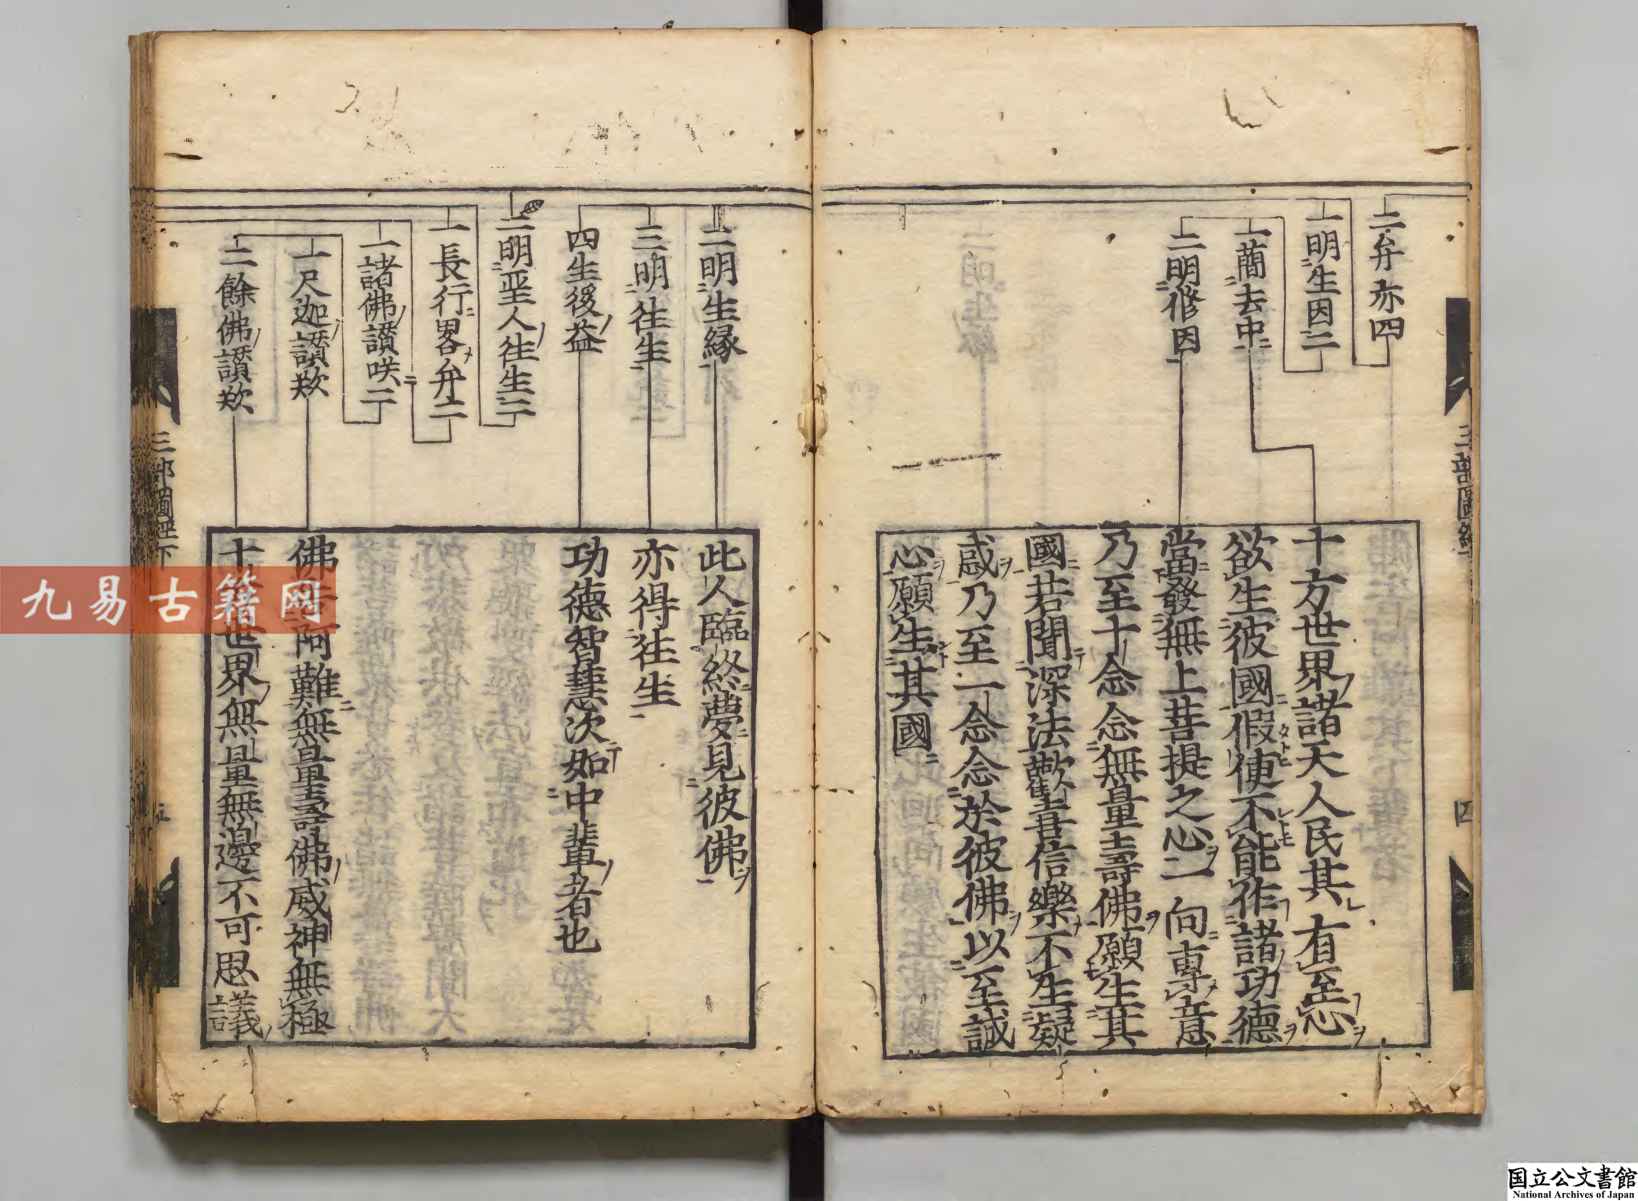 二弁亦四
一明生因二
一蕳去中
二明修因
十方世界諸天人民其有至心
欲生彼國假使不能作諸功德
當發無上菩提之心一向專意
乃至十念念無量壽佛願生其
國若聞深法歡喜信樂不生疑
惑乃至一念念於彼佛以至誠
心願生其國
三部圖經
四
二明生縁
三明往生
四生後益
二明圣人往生二
一長行畧弁二
一諸佛讃咲二
一尺迦讃歎
二餘佛讃歎
此人臨終夢見彼佛
亦得往生
功德智慧次如中軰者也
佛 阿難無量壽佛威神無極
十 世界無量無邊不可思議
三部圖經下
五
九易古籍网
国立公文書館
National Archives of Japan